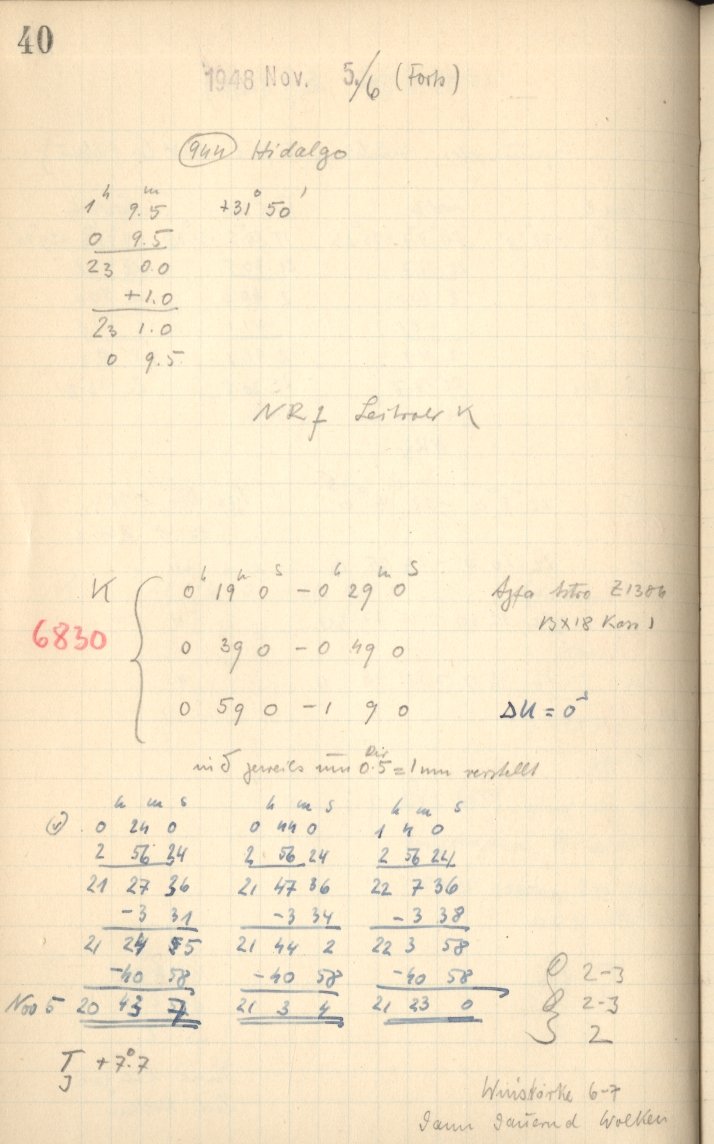 40
1948 Nov. 5./6 (Forts)
944 Hidalgo
1h 9m.5 +31° 50'
0 9.5
23 0.0
+1.0
23 1.0
0 9.5
NRf Leitrohr K
K 0h 19m 0s – 0h 29m 0s Agfa Astro Z1386
6830 0 39 0 – 0 49 0 13x18 Kass 1
0 59 0 – 1 9 0 ΔU = 0s
in δ jeweils um 0.5 Dir = 1mm verstellt
h m s h m s h m s
0 24 0 0 44 0 1 4 0
2 56 24 2 56 24 2 56 24
21 27 36 21 47 36 22 7 36
-3 31 -3 34 -3 38
21 24 5 21 44 2 22 3 58
-40 58 -40 58 -40 58
Nov 5 20 43 7 21 3 4 21 23 0
2-3
2-3
2
T +7°.7
J
Windstärke 6-7
Dann dauernd Wolken